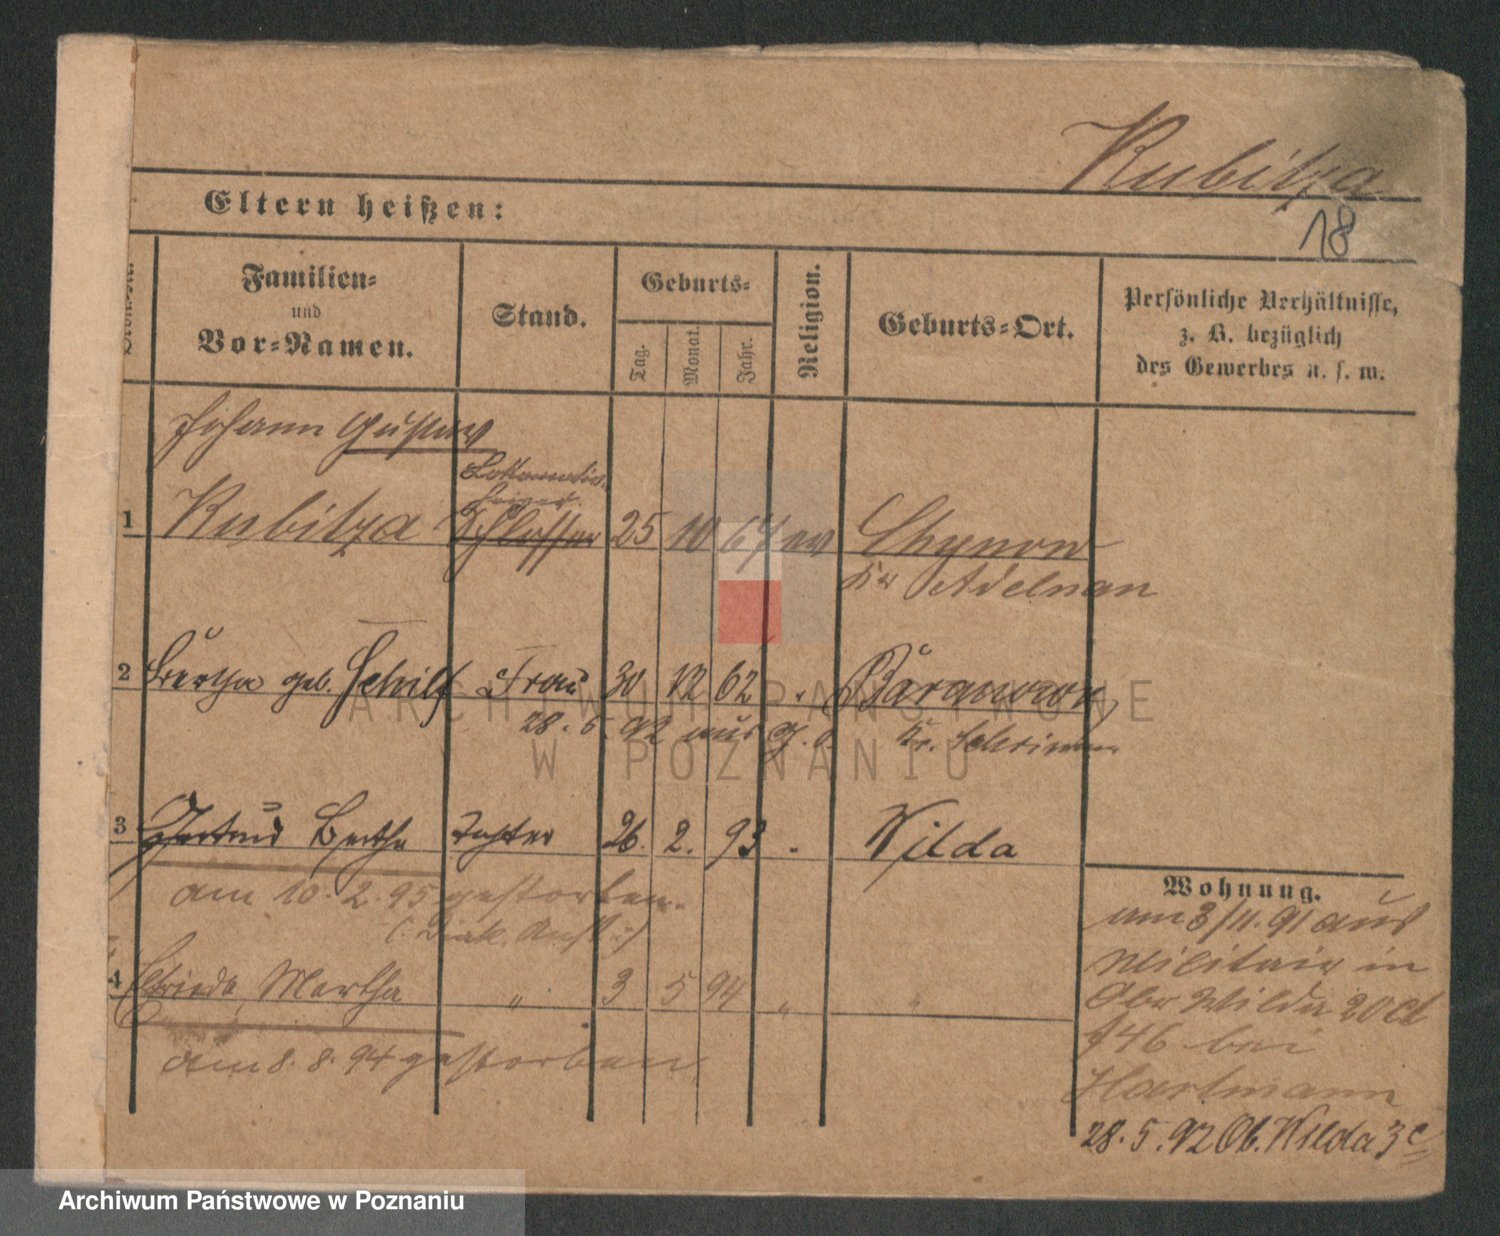 Kubitza
18
Eltern heißen:
Familien- und Vor-Namen.
Stand.
Geburts-
Tag.
Monat.
Jahr.
Religion.
Geburts-Ort.
Persönliche Verhältnisse,
z. B. bezüglich
des Gewerbes u. s. w.
Johann Gustav
Lokomotiv-
heizer
1 Kubitza Schlosser 25 10 67 ev Chynow
Kr Adelnau
2 Bertha geb. Schilf Frau 30 12 62 " Baranowo
28. 5. 92 aus Kr. Schrimm
3 Gertrud Bertha Tochter 26. 2. 93 " Wilda
am 10. 2. 95 gestorben.
(: Diak. Anst :)
4 Frieda Martha " 3 5 94 " "
am 8. 8. 94 gestorben
Wohnung.
am 3/11. 91 aus
Militair in
Ober Wilda
bei
Hartmann
28. 5. 92 Ob. Wilda 3c
ARCHIWUM PAŃSTWOWE
W POZNANIU
Archiwum Państwowe w Poznaniu